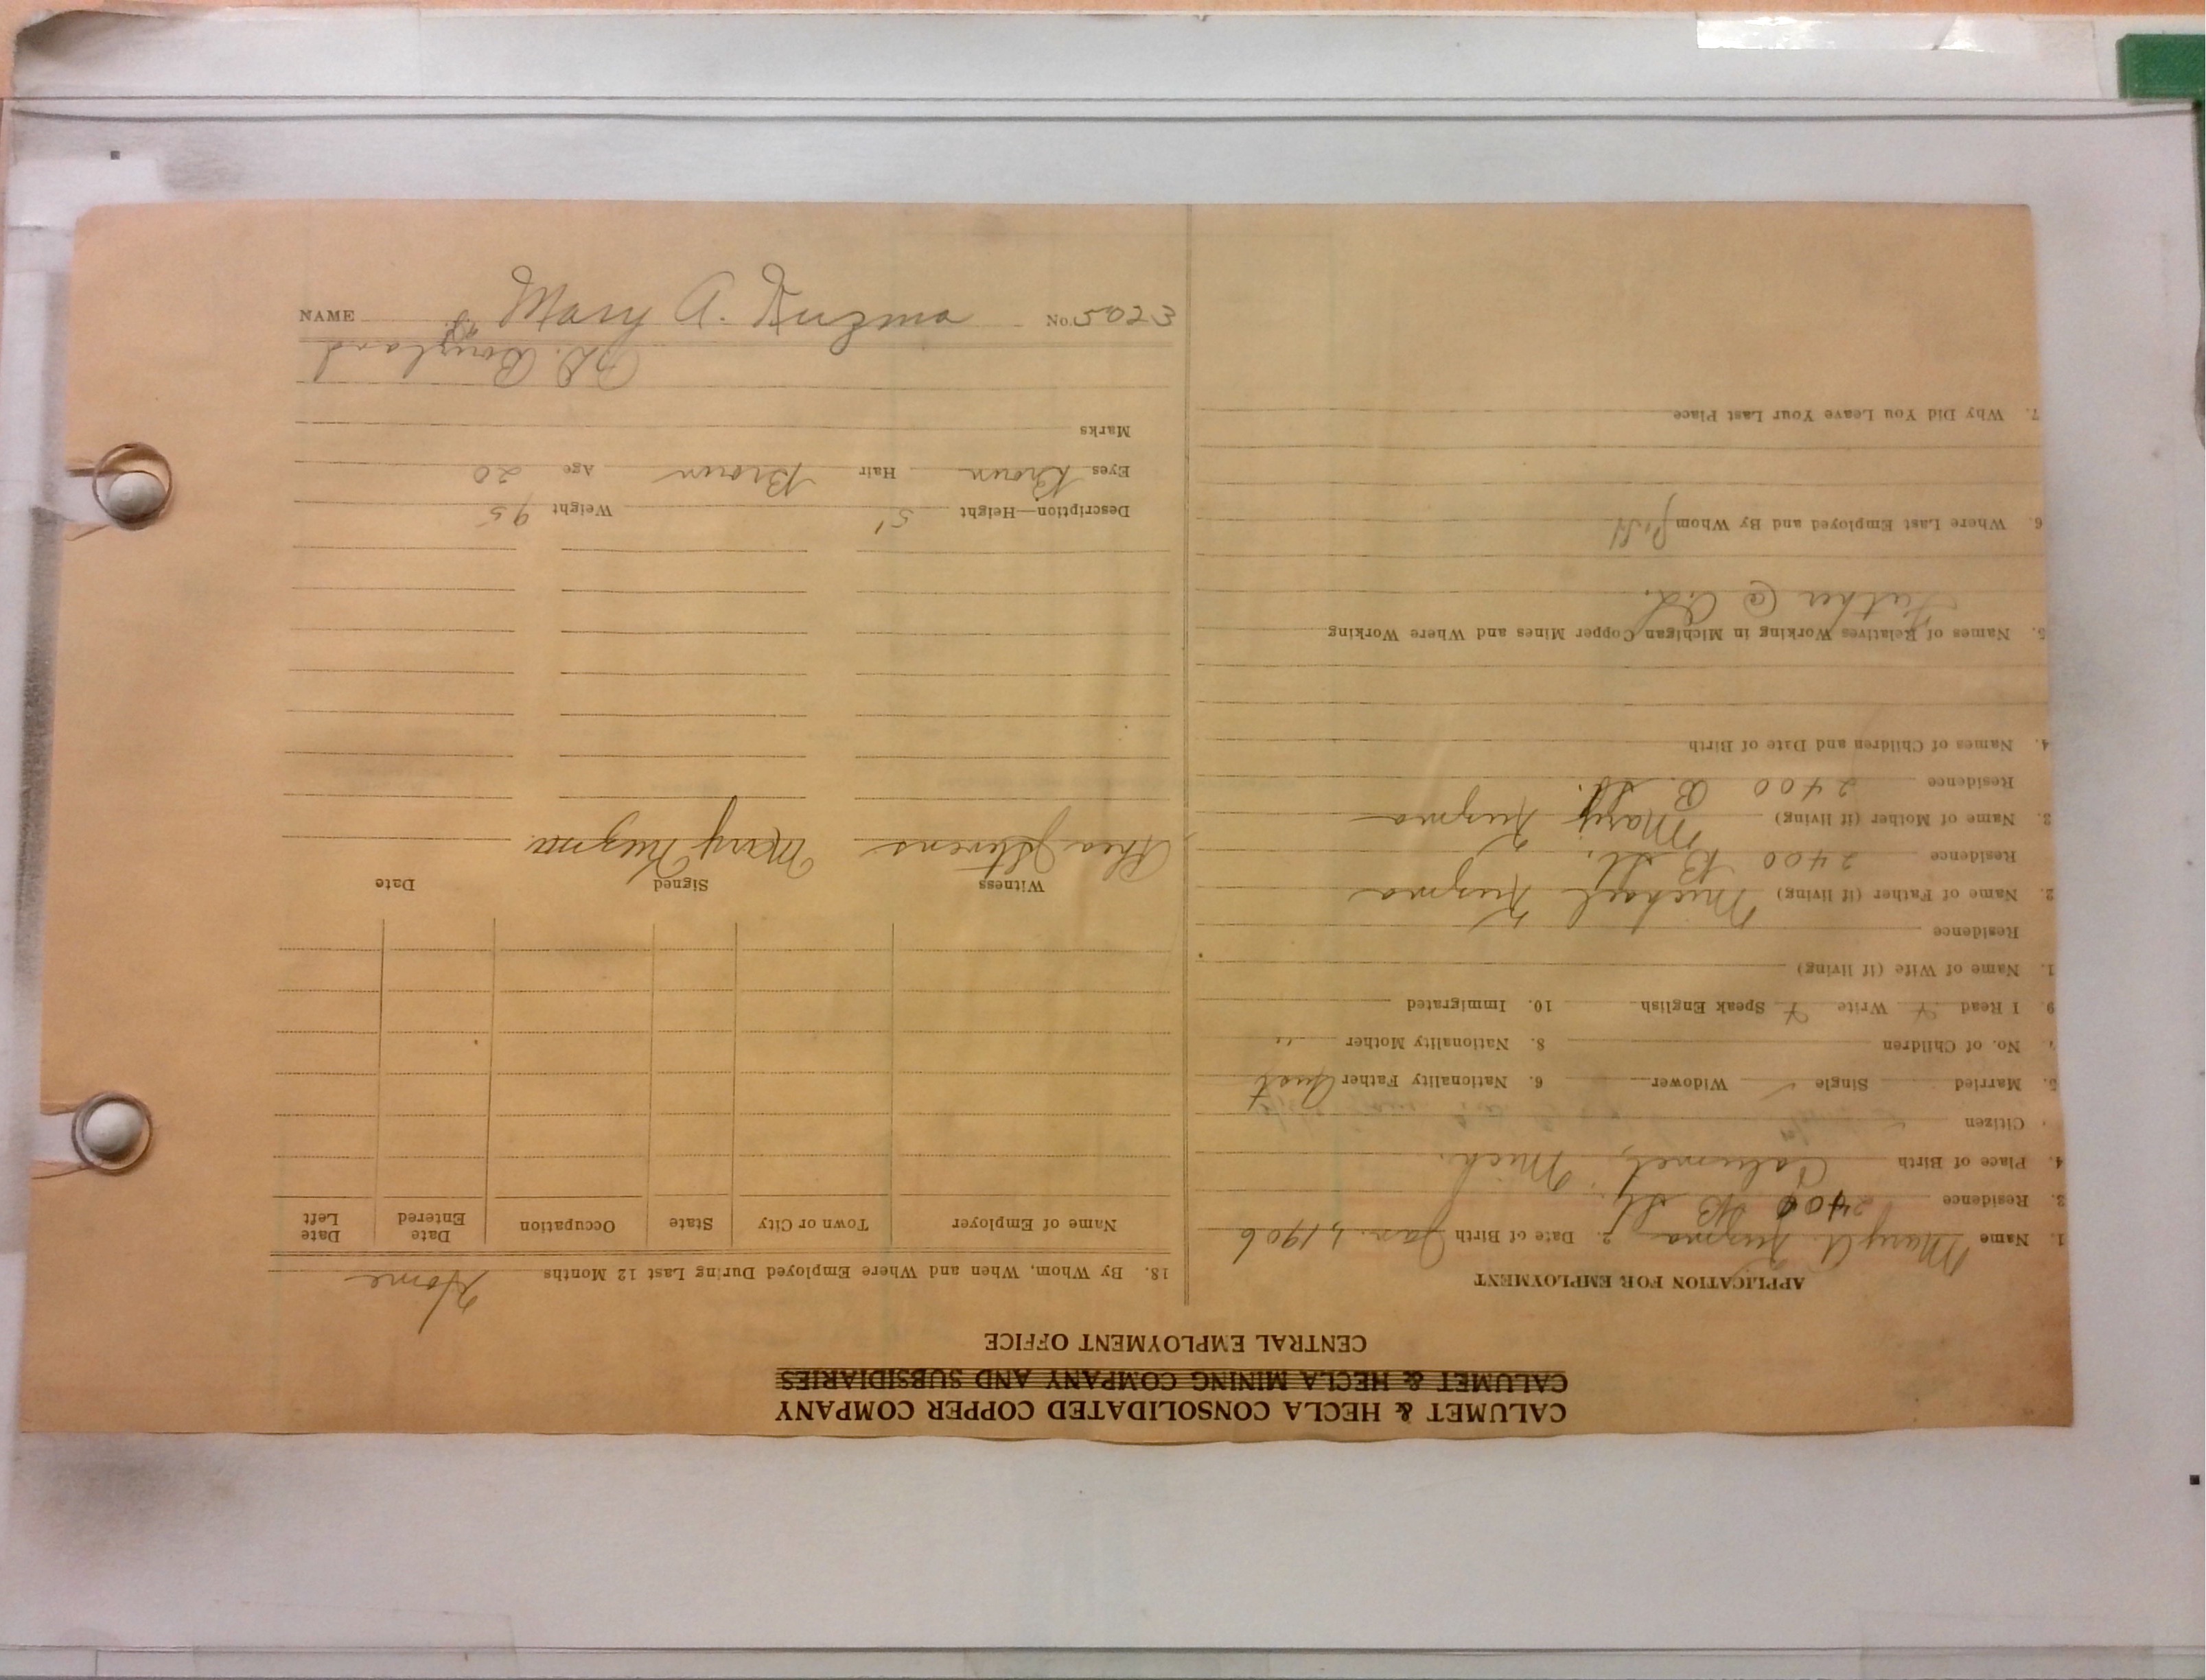 CALUMET & HECLA CONSOLIDATED COPPER COMPANY
CALUMET & HECLA MINING COMPANY AND SUBSIDIARIES
CENTRAL EMPLOYMENT OFFICE
APPLICATION FOR EMPLOYMENT
1. Name Mary A. Kuzma 2. Date of Birth Jan. 1, 1906
3. Residence 2400 B St.
4. Place of Birth Calumet, Mich.
Citizen
5. Married Single ✓ Widower 6. Nationality Father Aust
7. No. of Children 8. Nationality Mother "
9. I Read Write Speak English 10. Immigrated
1. Name of Wife (if living)
Residence
2. Name of Father (if living) Michael Kuzma
Residence 2400 B St.
3. Name of Mother (if living) Mary Kuzma
Residence 2400 B. St.
4. Names of Children and Date of Birth
5. Names of Relatives Working in Michigan Copper Mines and Where Working
Father @
6. Where Last Employed and By Whom
7. Why Did You Leave Your Last Place
18. By Whom, When and Where Employed During Last 12 Months Home
Name of Employer Town or City State Occupation Date Entered Date Left
Witness Signed Date
Rhea Stevens Mary Kuzma
Description—Height 5' Weight 95
Eyes Brown Hair Brown Age 20
Marks
NAME Mary A. Kuzma No. 5023